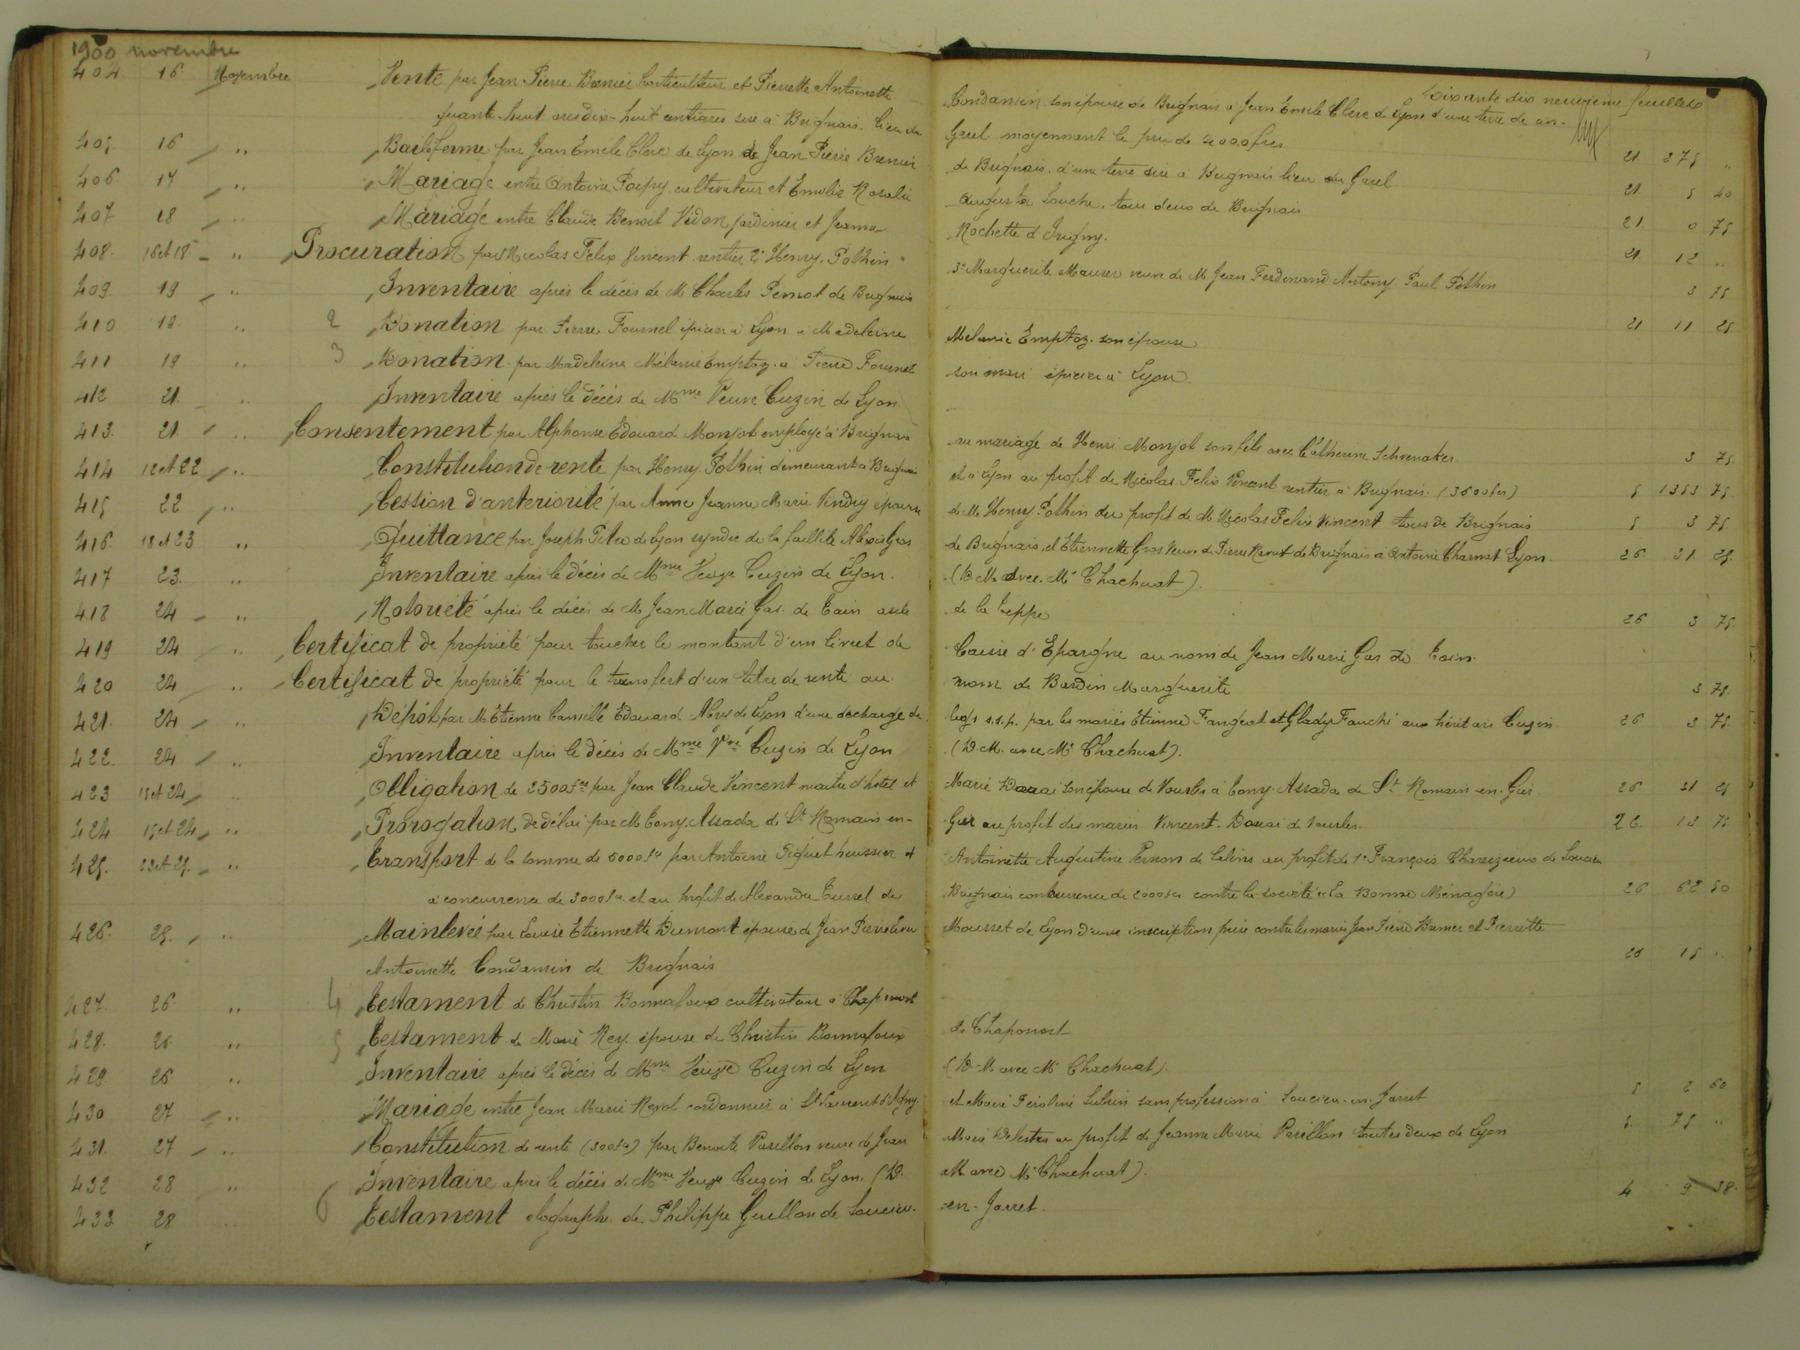 1900 novembre
Soixante dix neuvieme feuillets
404 16 Novembre Vente par Jean Pierre Brenier horticulteur et Pierrette Antoinette Condamin son épouse de Brignais à Jean Emile Clerc de Lyon d'une terre de cin-
quante-huit ares dix-huit centiares sise à Brignais. lieu du Garel moyennant le prix de 4000 frcs 21 275 "
405 16 " Bail à ferme par Jean Emile Clerc de Lyon de Jean Pierre Brenier de Brignais. d'une terre sise à Brignais lieu du Garel 21 5 40
406 17 " Mariage entre Antoine cultivateur et Emilie Rosalie Augusta Louche. tous deux de Brignais 21 0 75
407 18 " Mariage entre Claude Benoit Vidon jardinier et Jeanne Rochette d'Irigny. 21 12 "
408. 16 et 18 " Procuration par Nicolas Felix Vincent rentier 2° Henry. Pothin 3° Marguerite Maurer veuve de M. Jean Ferdinand Antony Paul Pothin 3 75
409. 19 " Inventaire après le décès de M. Charles Pernot de Brignais 21 11 25
410 19. " 2 Donation par Pierre Fournel épicier à Lyon à Madeleine Melanie Emptoz. son épouse
411 19 " 3 Donation par Madeleine Mélanie Emptoz. à Pierre Fournel son mari épicier à Lyon.
412 21. " Inventaire après le décès de Mme Veuve Cuzin de Lyon.
413. 21. " Consentement par Alphonse Edouard Monjot employé à Brignais au mariage de Henri Monjot son fils avec Catherine 3 75
414 12 et 22 " Constitution de rente par Henry Pothin demeurant à Brignais et à Lyon au profit de Nicolas Felix Vincent rentier à Brignais. (3500 frs) 5 1353 75
415 22 " Cession d'anteriorité par Anne Jeanne Marie Vindry épouse de M. Henry Pothin au profit de M. Nicolas Felix Vincent tous de Brignais 5 3 75
416. 18 et 23 " Quittance par Joseph de Lyon syndic de la faillite Alexis Gros de Brignais. et Etiennette Gros Veuve de Pierre de Brignais à Antoine Charnat Lyon. 26 31 25
417 23. " Inventaire après le décès de Mme Veuve Cuzin de Lyon. (D.M. avec. Me Chachuat).
418 24 " Notoriété après le décès de M. Jean Marie Gas. de
419 24 " Certificat de propriété pour toucher le montant d'un livret de Caisse d'Epargne au nom de Jean Marie Gas de
420 24 " Certificat de propriété pour le transfert d'un titre de rente au nom de Bardin Marguerite 3 75
421. 24 " Dépôt par M. Etienne Camille Edouard de Lyon d'une décharge de legs s.s.p. par les mariés Etienne et aux héritiers Cuzin 26 3 75
422. 24 " Inventaire après le décès de Mme Vve Cuzin de Lyon (D.M. avec Me Chachuat).
423 15 et 24 " Obligation de 2500 frs par Jean Claude Vincent maitre d'hotel et Marie Douai son épouse de Vourles à Tony. Assada de St Romain-en-Gier 26 31 25
424 15 et 24 " Prorogation de délai par M. Tony. Assada de St Romain-en- Gier au profit des mariés Vincent-Douai de Vourles. 26. 13 75
425. 23 et 25. " Transport de la somme de 5000 frs par Antoine Piquet huissier et Antoinette Augustine Pernon de au profit de 1° François de Soucieu
à concurrence de 3000 frs et au profit de Alexandre de Brignais concurrence de 2000 frs contre la société (La Bonne Ménagère) 26 62 50
426. 25. " Mainlevée par Louise Etiennette Dumont épouse de Jean Mousset de Lyon d'une inscription prise contre les mariés Jean Pierre Brenier et Pierrette
Antoinette Condamin de Brignais 26 15 "
427. 26 " 4 Testament de Christin Bonnafoux cultivateur à Chaponost
428. 26 " 5 Testament de Marie Rey. épouse de Christin Bonnafoux de Chaponost
429 26 " Inventaire après le décès de Mme Veuve Cuzin de Lyon (D.M. avec Me Chachuat).
430 27 " Mariage entre Jean Marie cordonnier à St Laurent d'Agny. et Marie sans profession à Soucieu-en-Jarret 5 2 50
431. 27 " Constitution de rente (300 frs) par Benoite Parillon veuve de Jean Marie au profit de Jeanne Marie Parillon toutes deux de Lyon 5. 75 "
432 28 " Inventaire après le décès de Mme Veuve Cuzin de Lyon. (D. M. avec Me Chachuat).
433 28 6 Testament olographe de Philippe Guillon de Soucieu-en-Jarret. 4 9 38.